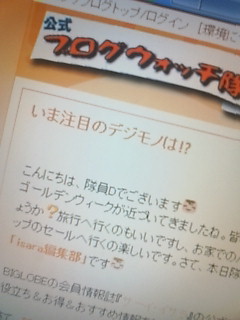 ブログトップ/ログイン [環境に
公式
ブログウォッチ隊
いま注目のデジモノは!?
こんにちは、隊員Dでございます
ゴールデンウィークが近づいてきましたね。皆
ょうか?旅行へ行くのもいいですし、お家での
ップのセールへ行くの楽しいです。さて、本日隊
「isara編集部」です
BIGLOBEの会員情報誌
役立ち&お得&おすすめ情報